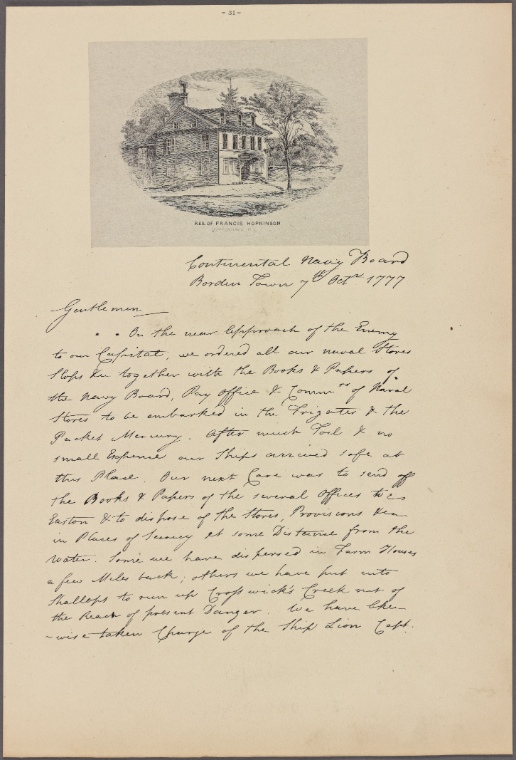 - 31 -
RES. OF FRANCIS HOPKINSON
Continental Navy Board
Borden Town 7th Octr 1777
Gentlemen
On the near Approach of the Enemy
to our Capital, we ordered all our naval Stores
Slops &c together with the Books & Papers of
the Navy Board, Pay Office & Commrs of Naval
Stores to be embarked in the Frigates & the
Packet Mercury. After much Toil & no
small Expence our Ships arrived safe at
this Place. Our next Care was to send off
the Books & Papers of the several Offices to
Easton & to dispose of the Stores, Provisions &ca
in Places of Security at some Distance from the
Water. Some we have dispersed in Farm Houses
a few Miles back; others we have put into
Shallops to run up Crosswick's Creek out of
the Reach of present Danger. We have like-
-wise taken Charge of the Ship Lion Capt.